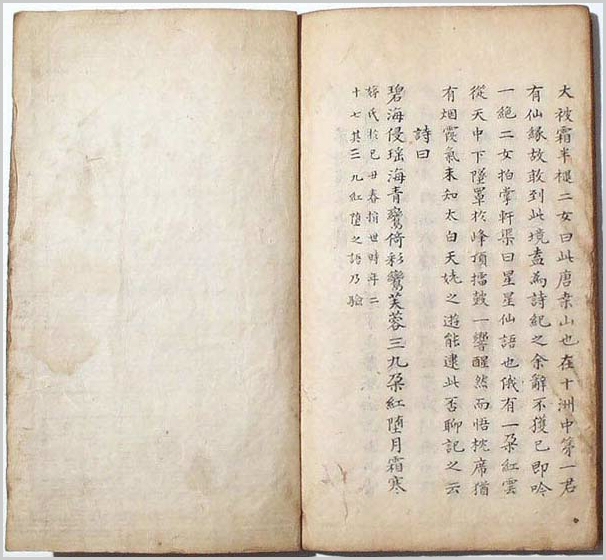 大被霜半褪二女曰此唐桒山也在十洲中第一君
有仙緣故敢到此境盍為詩紀之余辭不獲已即吟
一絶二女拍掌軒渠曰星星仙語也俄有一朵紅雲
從天中下墜罩扵峰頂擂鼓一響醒然而悟枕席猶
有烟霞氣未知太白天姥之遊能逮此否聊記之云
詩曰
碧海侵瑶海青鸞倚彩鸞芙蓉三九朵紅墮月霜寒
姊氏扵己丑春捐世時年二
十七其三九紅墮之語乃驗